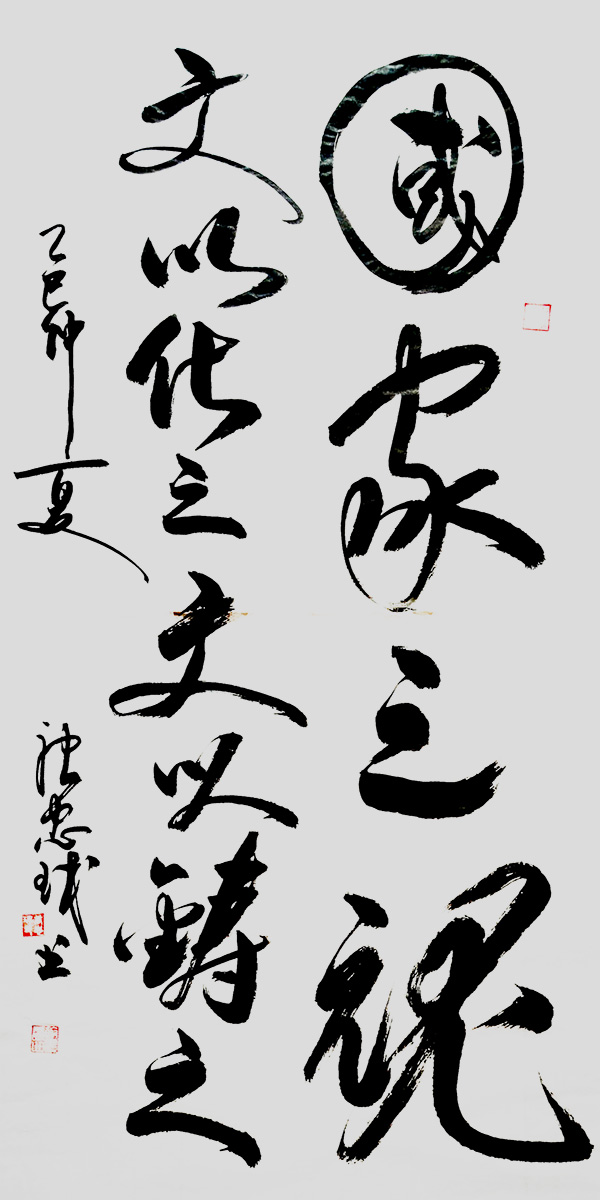 國家之魂
文以化之文以鑄之
乙巳仲夏
忠
书